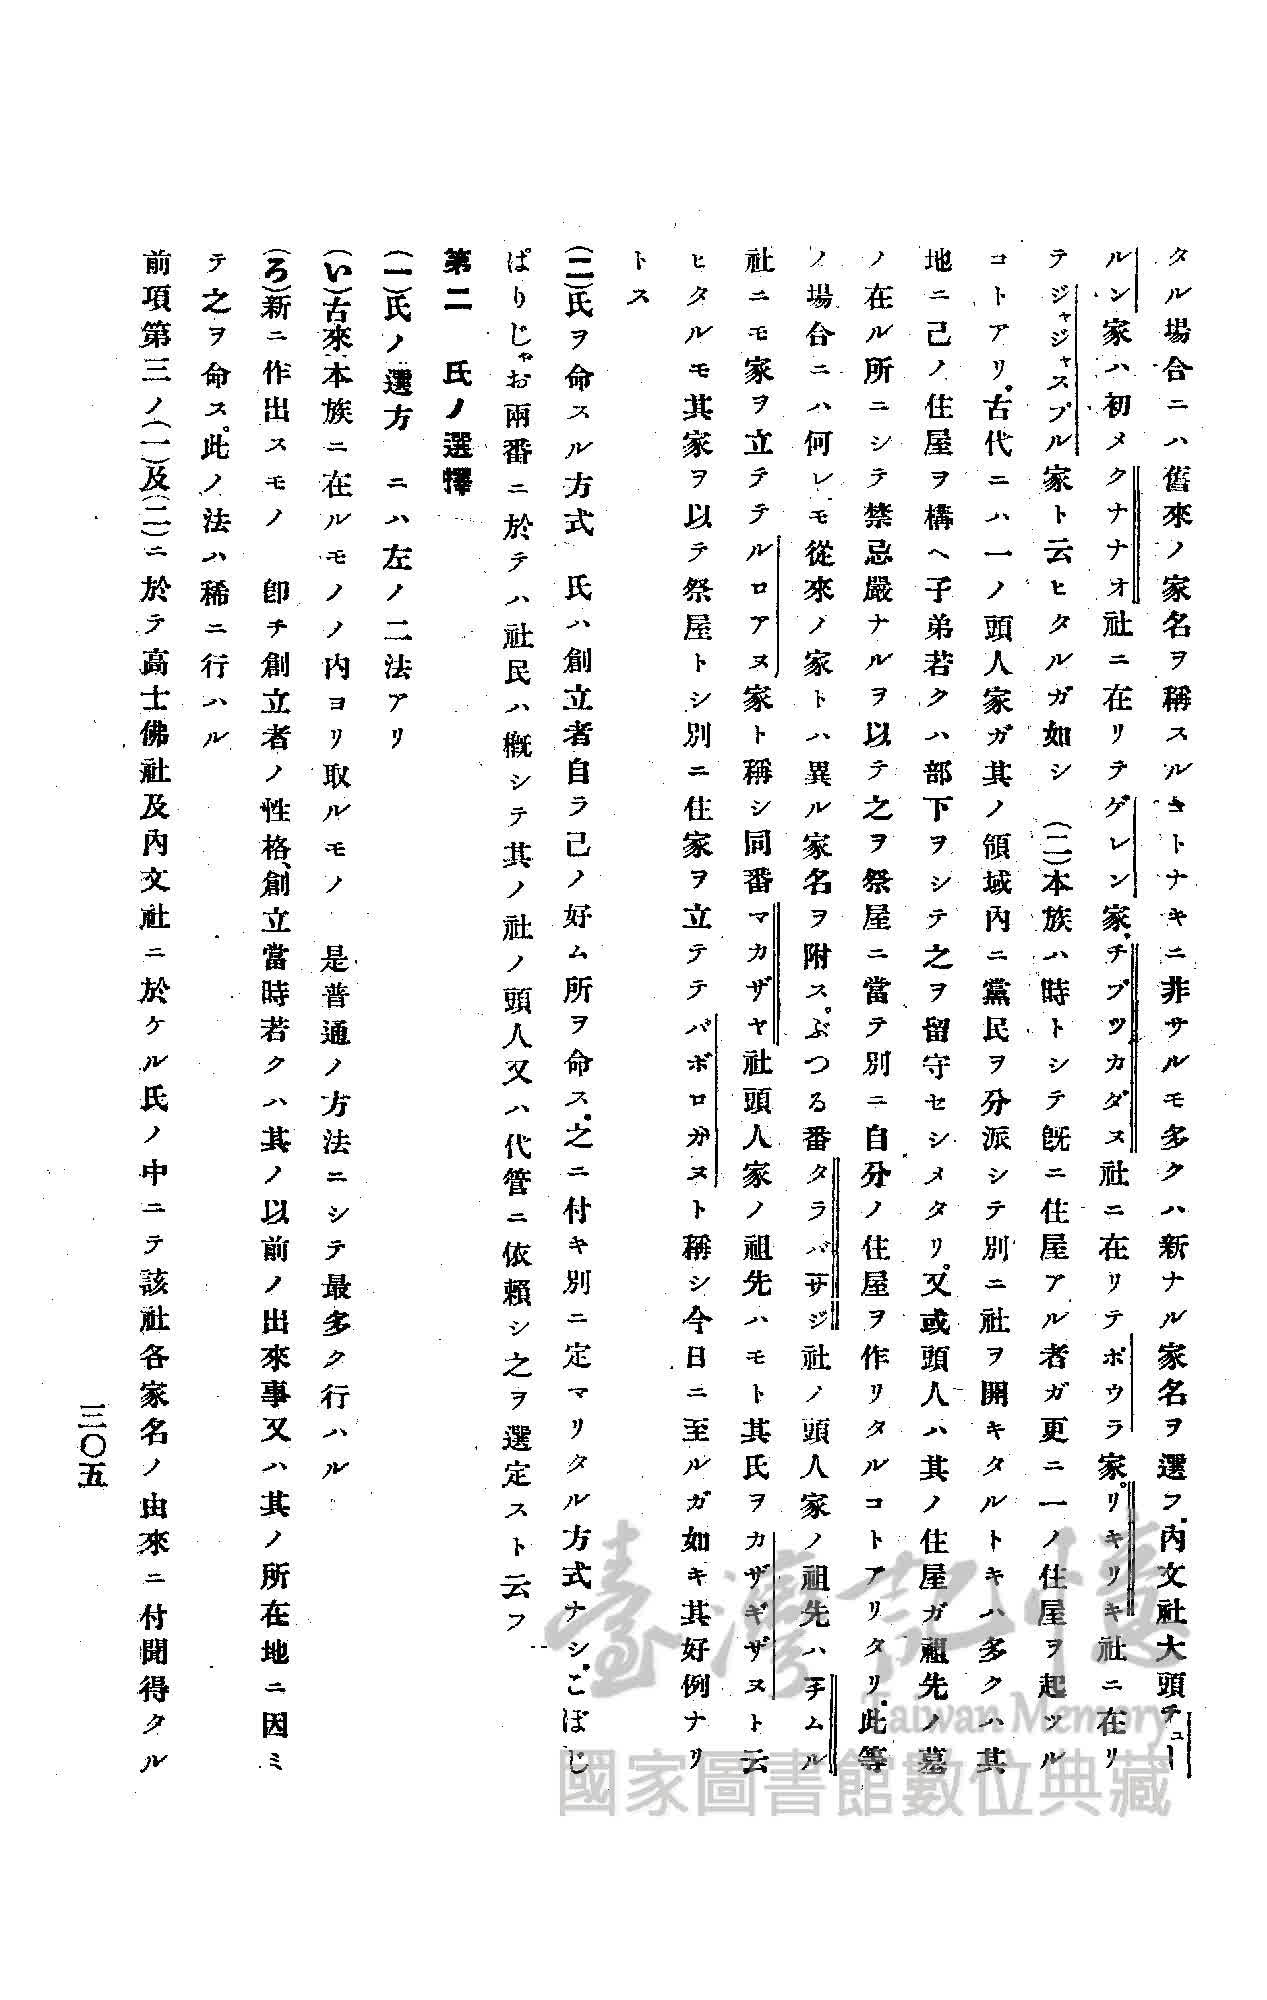 タル場合ニハ舊來ノ家名ヲ稱スルコトナキニ非サルモ多クハ新ナル家名ヲ選フ、內文社大頭チュー
ルン家ハ初メクナナオ社ニ在リテゲレン家、チブツカダス社ニ在リテボウラ家、リキリキ社ニ在リ
テジャジャスブル家ト云ヒタルガ如シ (二)本族ハ時トシテ既ニ住屋アル者ガ更ニ一ノ住屋ヲ起ツル
コトアリ。古代ニハ一ノ頭人家ガ其ノ領域內ニ黨民ヲ分派シテ別ニ社ヲ開キタルトキハ多クハ其
地ニ己ノ住屋ヲ構ヘ子弟若クハ部下ヲシテ之ヲ留守セシメタリ。又或頭人ハ其ノ住屋ガ祖先ノ墓
ノ在ル所ニシテ禁忌嚴ナルヲ以テ之ヲ祭屋ニ當テ別ニ自分ノ住屋ヲ作リタルコトアリタリ。此等
ノ場合ニハ何レモ從來ノ家トハ異ル家名ヲ附ス。ぶつる番タラバサジ社ノ頭人家ノ祖先ハチムル
社ニモ家ヲ立テテルロアヌ家ト稱シ同番マカザヤ社頭人家ノ祖先ハモト其氏ヲカザギザヌト云
ヒタルモ其家ヲ以テ祭屋トシ別ニ住家ヲ立テテバボロガヌト稱シ今日ニ至ルガ如キ其好例ナリ
トス
(二)氏ヲ命スル方式 氏ハ創立者自ラ己ノ好ム所ヲ命ス、之ニ付キ別ニ定マリタル方式ナシ。こぼじ
ぱりじゃお兩番ニ於テハ社民ハ槪シテ其ノ社ノ頭人又ハ代管ニ依賴シ之ヲ選定スト云フ
第二 氏ノ選擇
(一)氏ノ選方 ニハ左ノ二法アリ
(い)古來本族ニ在ルモノノ內ヨリ取ルモノ 是普通ノ方法ニシテ最多ク行ハル
(ろ)新ニ作出スモノ 卽チ創立者ノ性格、創立當時若クハ其ノ以前ノ出來事又ハ其ノ所在地ニ因ミ
テ之ヲ命ス。此ノ法ハ稀ニ行ハル
前項第三ノ(一)及(二)ニ於テ高士佛社及內文社ニ於ケル氏ノ中ニテ該社各家名ノ由來ニ付聞得タル
三〇五
臺灣記憶
Taiwan Memory
國家圖書館數位典藏